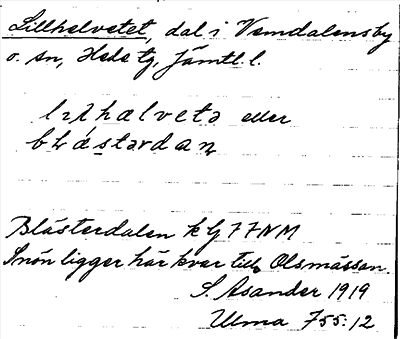 Lillhelvetet, dal i Vemdalens by
o. sn, Hede tg, Jämtl. l.
lıꞎhælvetə eller
bɫǽstərdan
Blästerdalen k G 77 NM
Snön ligger här kvar till Olsmässan.
S. Asander 1919
Ulma 755:12